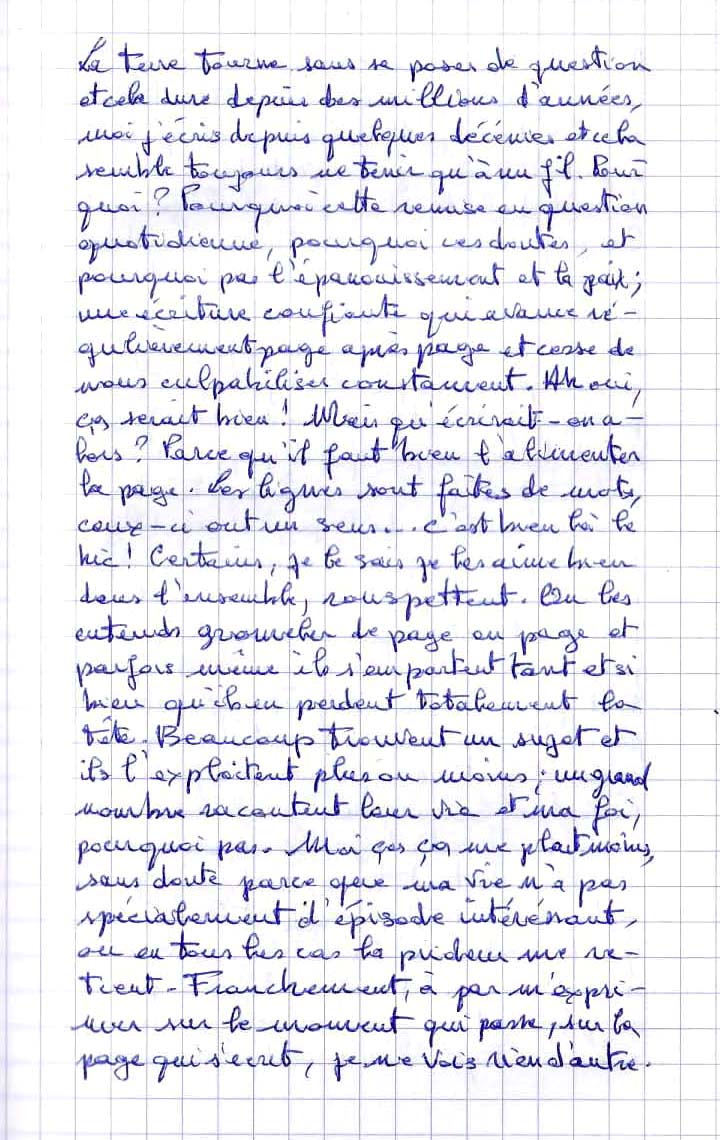 La terre tourne sans se poser de question
et cela dure depuis des millions d'années,
moi j'écris depuis quelques décénies et cela
semble toujours ne tenir qu'à un fil. Pour-
quoi? Pourquoi cette remise en question
quotidienne, pourquoi ces doutes, et
pourquoi pas l'épanouissement et la paix;
une écriture confiante qui avance ré-
gulièrement page après page et cesse de
nous culpabiliser constamment. Ah oui,
ça serait bien! Mais qu'écrirait-on a-
lors? Parce qu'il faut bien l'alimenter
la page. Les lignes sont faites de mots,
ceux-ci ont un sens... c'est bien là le
hic! Certains, je le sais je les aime bien
dans l'ensemble, rouspettent. On les
entends grommeler de page en page et
parfois même ils s'emportent tant et si
bien qu'ils en perdent totalement la
tête. Beaucoup trouvent un sujet et
ils l'exploitent plus ou moins; un grand
nombre racontent leur vie et ma foi,
pourquoi pas. Moi ça me plait moins,
sans doute parce que ma vie n'a pas
spécialement d'épisode intéréssant,
ou en tous les cas la pudeur me re-
tient. Franchement, à par m'expri-
mer sur le moment qui passe, sur la
page qui s'écrit, je ne vois rien d'autre.